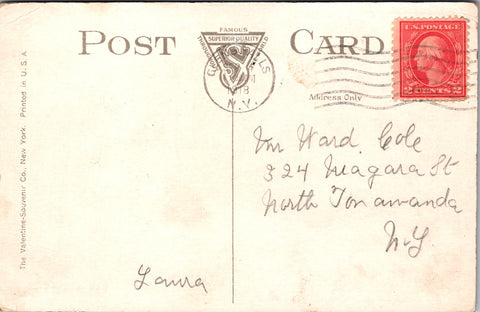 POST CARD
FAMOUS
THROUGHOUT
SUPERIOR-QUALITY
WORLD
VS
U.S. POSTAGE
2 CENTS 2
1918
N.Y.
Address Only
Ward Cole
324 Niagara St
North Tonawanda
N-Y
Laura
The Valentine-Souvenir Co., New York. Printed in U. S. A.